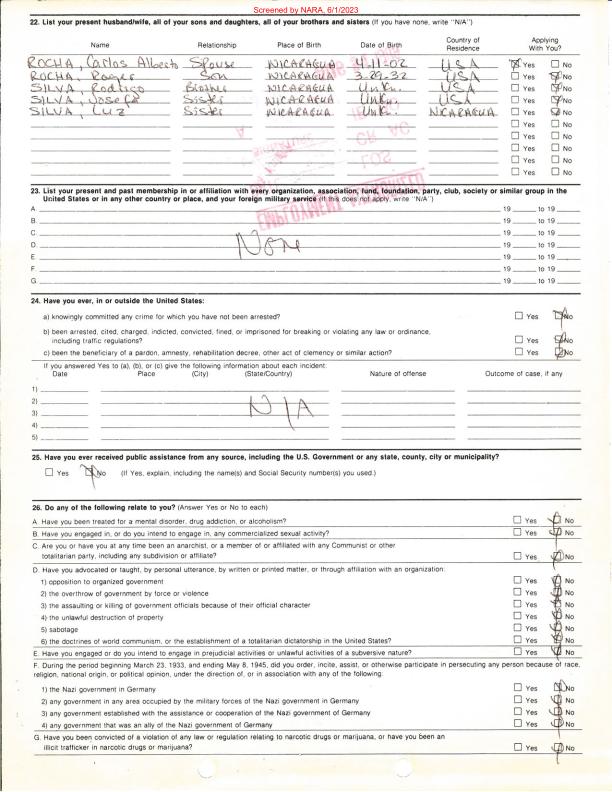 Screened by NARA, 6/1/2023
22. List your present husband/wife, all of your sons and daughters, all of your brothers and sisters (If you have none, write "N/A")
Name Relationship Place of Birth Date of Birth Country of Residence Applying With You?
ROCHA, Carlos Alberto Spouse NICARAGUA 4-11-02 USA Yes No
ROCHA, Roger Son NICARAGUA 3-29-32 USA Yes No
SILVA, Rodrigo Brother NICARAGUA Unk. USA Yes No
SILVA, Josefa Sister NICARAGUA Unk. USA Yes No
SILVA, Luz Sister NICARAGUA Unk. NICARAGUA Yes No
Yes No
Yes No
Yes No
Yes No
Yes No
23. List your present and past membership in or affiliation with every organization, association, fund, foundation, party, club, society or similar group in the
United States or in any other country or place, and your foreign military service (If this does not apply, write "N/A")
EMPLOYMENT AUTHORIZED
A. 19 to 19
B. 19 to 19
C. 19 to 19
None
D. 19 to 19
E. 19 to 19
F. 19 to 19
G. 19 to 19
24. Have you ever, in or outside the United States:
a) knowingly committed any crime for which you have not been arrested? Yes No
b) been arrested, cited, charged, indicted, convicted, fined, or imprisoned for breaking or violating any law or ordinance,
including traffic regulations? Yes No
c) been the beneficiary of a pardon, amnesty, rehabilitation decree, other act of clemency or similar action? Yes No
If you answered Yes to (a), (b), or (c) give the following information about each incident:
Date Place (City) (State/Country) Nature of offense Outcome of case, if any
1)
2)
N/A
3)
4)
5)
25. Have you ever received public assistance from any source, including the U.S. Government or any state, county, city or municipality?
Yes No (If Yes, explain, including the name(s) and Social Security number(s) you used.)
26. Do any of the following relate to you? (Answer Yes or No to each)
A. Have you been treated for a mental disorder, drug addiction, or alcoholism? Yes No
B. Have you engaged in, or do you intend to engage in, any commercialized sexual activity? Yes No
C. Are you or have you at any time been an anarchist, or a member of or affiliated with any Communist or other
totalitarian party, including any subdivision or affiliate? Yes No
D. Have you advocated or taught, by personal utterance, by written or printed matter, or through affiliation with an organization:
1) opposition to organized government Yes No
2) the overthrow of government by force or violence Yes No
3) the assaulting or killing of government officials because of their official character Yes No
4) the unlawful destruction of property Yes No
5) sabotage Yes No
6) the doctrines of world communism, or the establishment of a totalitarian dictatorship in the United States? Yes No
E. Have you engaged or do you intend to engage in prejudicial activities or unlawful activities of a subversive nature? Yes No
F. During the period beginning March 23, 1933, and ending May 8, 1945, did you order, incite, assist, or otherwise participate in persecuting any person because of race,
religion, national origin, or political opinion, under the direction of, or in association with any of the following:
1) the Nazi government in Germany Yes No
2) any government in any area occupied by the military forces of the Nazi government in Germany Yes No
3) any government established with the assistance or cooperation of the Nazi government of Germany Yes No
4) any government that was an ally of the Nazi government of Germany Yes No
G. Have you been convicted of a violation of any law or regulation relating to narcotic drugs or marijuana, or have you been an
illicit trafficker in narcotic drugs or marijuana? Yes No